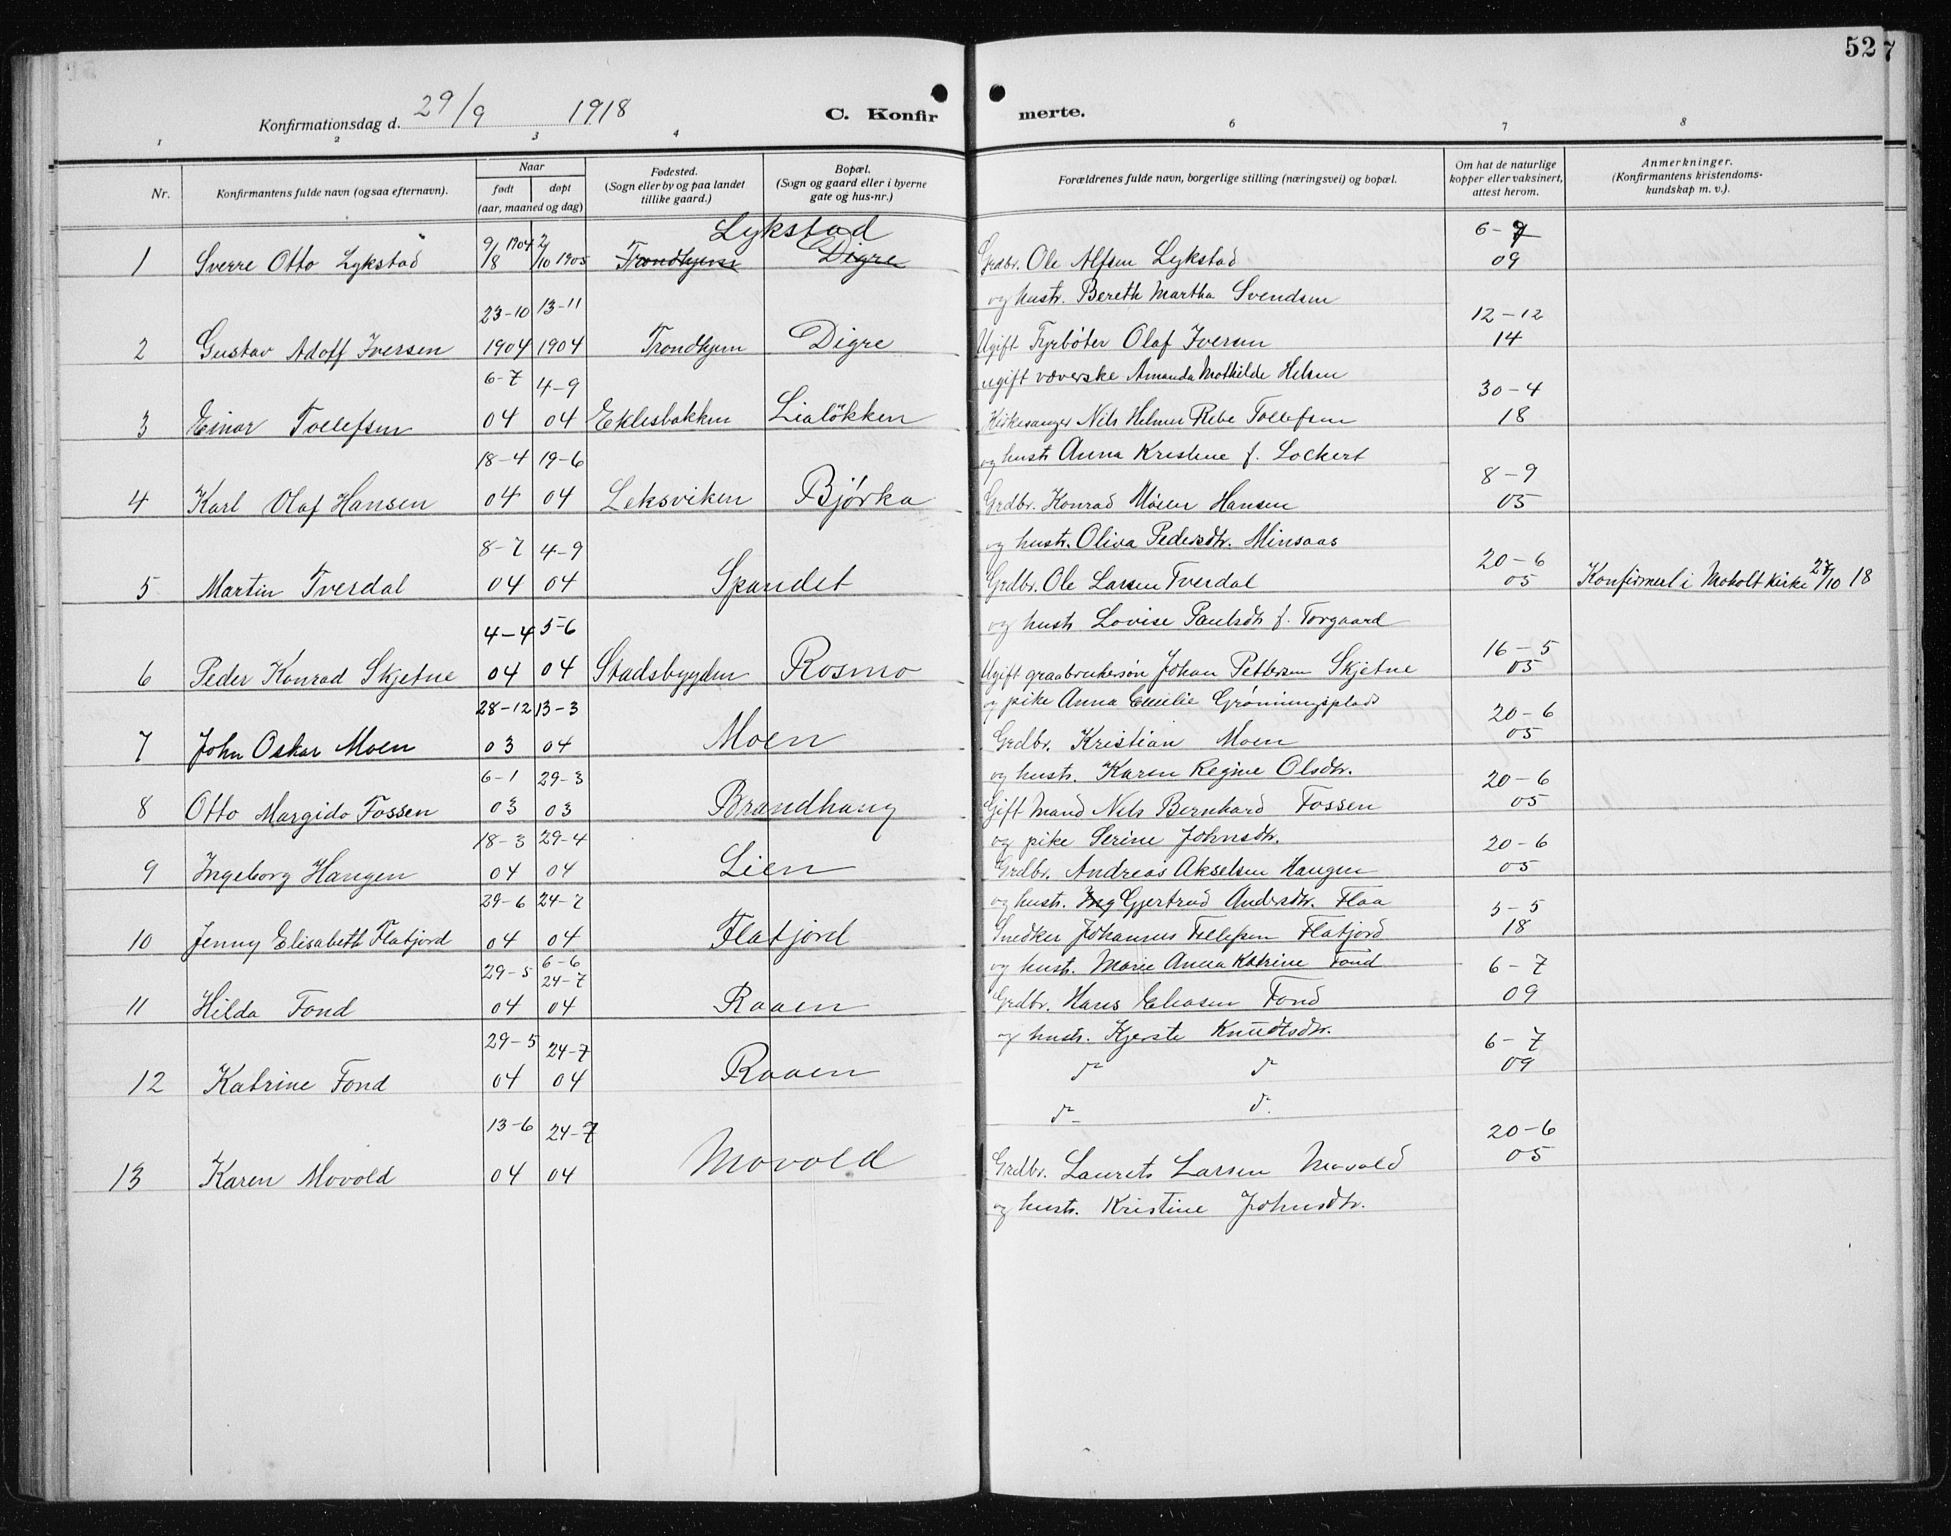 52
7
Konfirmationsdag d. 29/9 1918
C. Konfirmerte.
1 2 3 4 6 7 8
Nr.
Konfirmantens fulde navn (ogsaa efternavn).
Naar
født døpt
(aar, maaned og dag)
Fødested.
(Sogn eller by og paa landet
tillike gaard.)
Bopæl.
(Sogn og gaard eller i byerne
gate og hus-nr.)
Forældrenes fulde navn, borgerlige stilling (næringsvei) og bopæl.
Om hat de naturlige
kopper eller vaksinert,
attest herom.
Anmerkninger.
(Konfirmantens kristendoms-
kundskap m. v.).
Lykstad
1 Sverre Otto Lykstad 9/8 1904 2/10 1905 Trondhjem Digre Grdbr. Ole Alfsen Lykstad 6-7 09
og hustr. Bereth Martha Svendsen
2 Gustav Adolf Iversen 23-10 1904 13-11 1904 Trondhjem Digre Ugift Fyrbøter Olaf Iversen 12-12 14
ugift væverske Amanda Mathilde Helsen
3 Einar Tollefsen 6-7 04 4-9 04 Eklesbakken Lialökken Kirkesanger Nils Helmer Rebe Tollefsen 30-4 18
og hustr Anna Kristine f. Lockert
4 Karl Olaf Hansen 18-4 04 19-6 04 Leksviken Bjørka Grdbr. Konrad Møller Hansen 8-9 05
og hustr. Oliva Pedersdtr. Minsaas
5 Martin Tverdal 8-7 04 4-9 04 Spandet Grdbr. Ole Larsen Tverdal 20-6 05 Konfirmert i Moholt kirke 27/10 18
og hustr Lovise Paulsdtr f. Torgaard
6 Peder Konrad Skjetne 4-4 04 5-6 04 Stadsbygden Rosmo Ugift graabrukersøn Johan Pettersen Skjetne 16-5 05
og pike Anna Emilie Grønningsplads
7 John Oskar Moen 28-12 03 13-3 04 Moen Grdbr. Kristian Moen 20-6 05
og hustr. Karen Regine Olsdtr.
8 Otto Margido Fossen 6-1 03 29-3 03 Brandhaug Gift Mand Nels Bernhard Fossen 20-6 05
og pike Serine Johnsdtr.
9 Ingeborg Haugen 18-3 04 29-4 04 Lien Grdbr. Andreas Akselsen Haugen 20-6 05
og hustr. Ing Gjertrud Andersdtr. Flaa
10 Jenny Elisabeth Flatjord 29-6 04 24-7 04 Flatjord Snedker Johannes Tollefsen Flatjord 5-5 18
og hustr. Marie Anna Katrine Fond
11 Hilda Fond 29-5 04 6-6 24-7 04 Raaen Grdbr. Hans Eliasen Fond 6-7 09
og hustr. Kjerste Knudtsdtr.
12 Katrine Fond 29-5 04 24-7 04 Raaen do do 6-7 09
do do
13 Karen Movold 13-6 04 24-7 04 Movold Grdbr. Laurits Larsen Movold 20-6 05
og hustr. Kristine Johnsdtr.